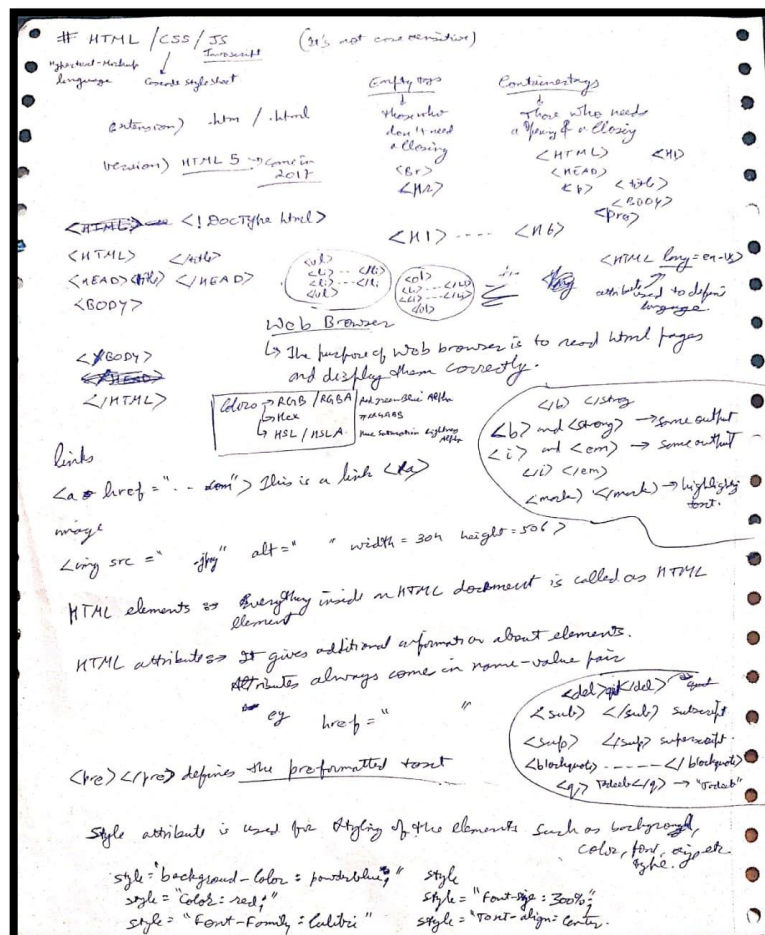 # HTML / CSS / JS (It's not case sensitive)
Hypertext-Markup Language
Cascade style sheet
Javascript
Empty tags
those who don't need a closing
<Br>
<Hr>
Container tags
Those who needs a opening & a closing
<HTML> <H1>
<HEAD>
<title>
<BODY>
<pre>
extension) .htm / .html
version) HTML 5 → came in 2017
<! DocType html>
<H1> ---- <H6>
<HTML> </title>
<HEAD> <title> </HEAD>
<BODY>
<ul>
<li> -- </li>
<li> -- </li>
</ul>
<ol>
<li> -- </li>
<li> -- </li>
</ol>
<HTML lang = en-us>
attribute used to define language.
Web Browser
↳ The purpose of Web browser is to read html pages
and display them correctly.
</BODY>
</HTML>
Colors → RGB / RGBA Red green Blue Alpha
→ Hex
↳ HSL / HSLA Hue Saturation Lightness Alpha
</b> </strong
<b> and <strong> → same output
<i> and <em> → same output
</i> </em>
<mark> </mark> → highlights text.
links
<a href = ".. .com"> This is a link </a>
image
<img src = " .jpg" alt = " " width = 304 height = 506>
HTML elements ⇒ Everything inside a HTML document is called as HTML
element
HTML attributes ⇒ It gives additional information about elements.
Attributes always come in name-value pair
eg href = " "
<del> </del>
<sub> </sub> subscript
<sup> </sup> superscript
<blockquote> ------ </blockquote>
<q> </q> →
<pre> </pre> defines the preformatted text
Style attribute is used for styling of the elements such as background,
color, font, size, etc.
type.
style = "background-color : powderblue;" style
style = "Color : red;" style = "Font-size : 300%";
style = "Font-Family : Calibri" style = "Text-align : Center.